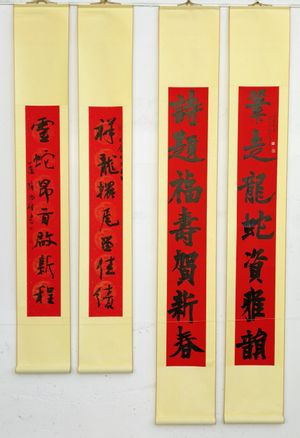 筆走龍蛇資雅韻
詩題福壽賀新春
祥龍擺尾留佳績
靈蛇昂首啟新程